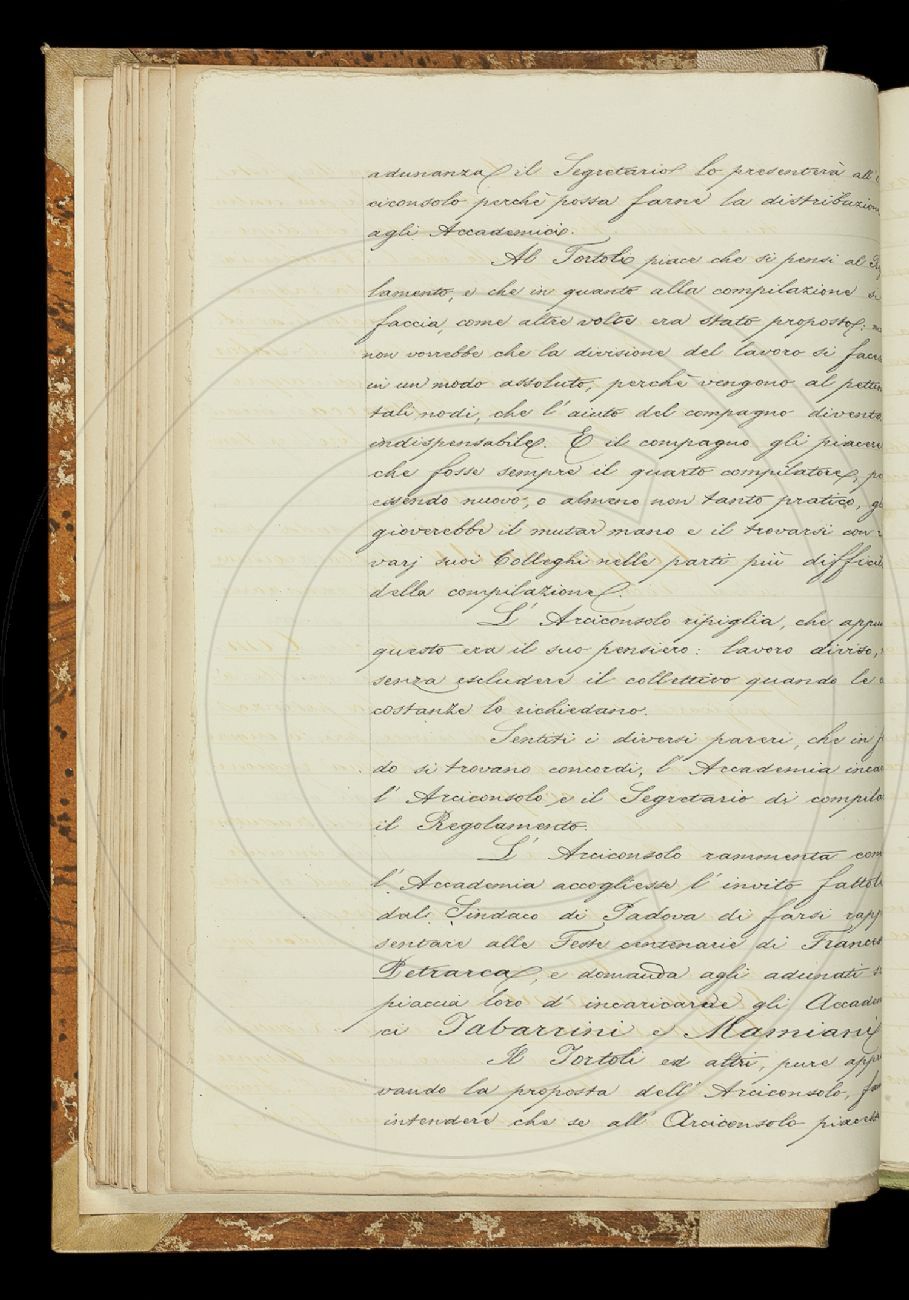 adunanza il Segretario lo presenterà all'
ciconsolo perchè possa farne la distribuzion
agli Accademici.
Al Tortoli piace che si pensi al
lamento, e che in quanto alla compilazione si
faccia, come altre volte era stato proposto:
non vorrebbe che la divisione del lavoro si face
in un modo assoluto, perchè vengono al pettin
tali nodi, che l'aiuto del compagno divent
indispensabile. E il compagno gli piacere
che fosse sempre il quarto compilatore, po
essendo nuovo, o almeno non tanto pratico, gl
gioverebbe il mutar mano e il trovarsi con
varj suoi Colleghi nelle parti più diffici
della compilazione.
L'Arciconsolo ripiglia, che appu
questo era il suo pensiero: lavoro diviso,
senza escludere il collettivo quando le
costanze lo richiedano.
Sentiti i diversi pareri, che in f
do si trovano concordi, l'Accademia incar
l'Arciconsolo e il Segretario di compila
il Regolamento.
L'Arciconsolo rammenta com
l'Accademia accogliesse l'invito fattol
dal Sindaco di Padova di farsi rapp
sentare alle Feste centenarie di Francesc
Petrarca, e domanda agli adunati s
piaccia loro d'incaricarne gli Accadem
ci Tabarrini e Mamiani
Il Tortoli ed altri, pure appr
vando la proposta dell'Arciconsolo, fan
intendere che se all'Arciconsolo piacess